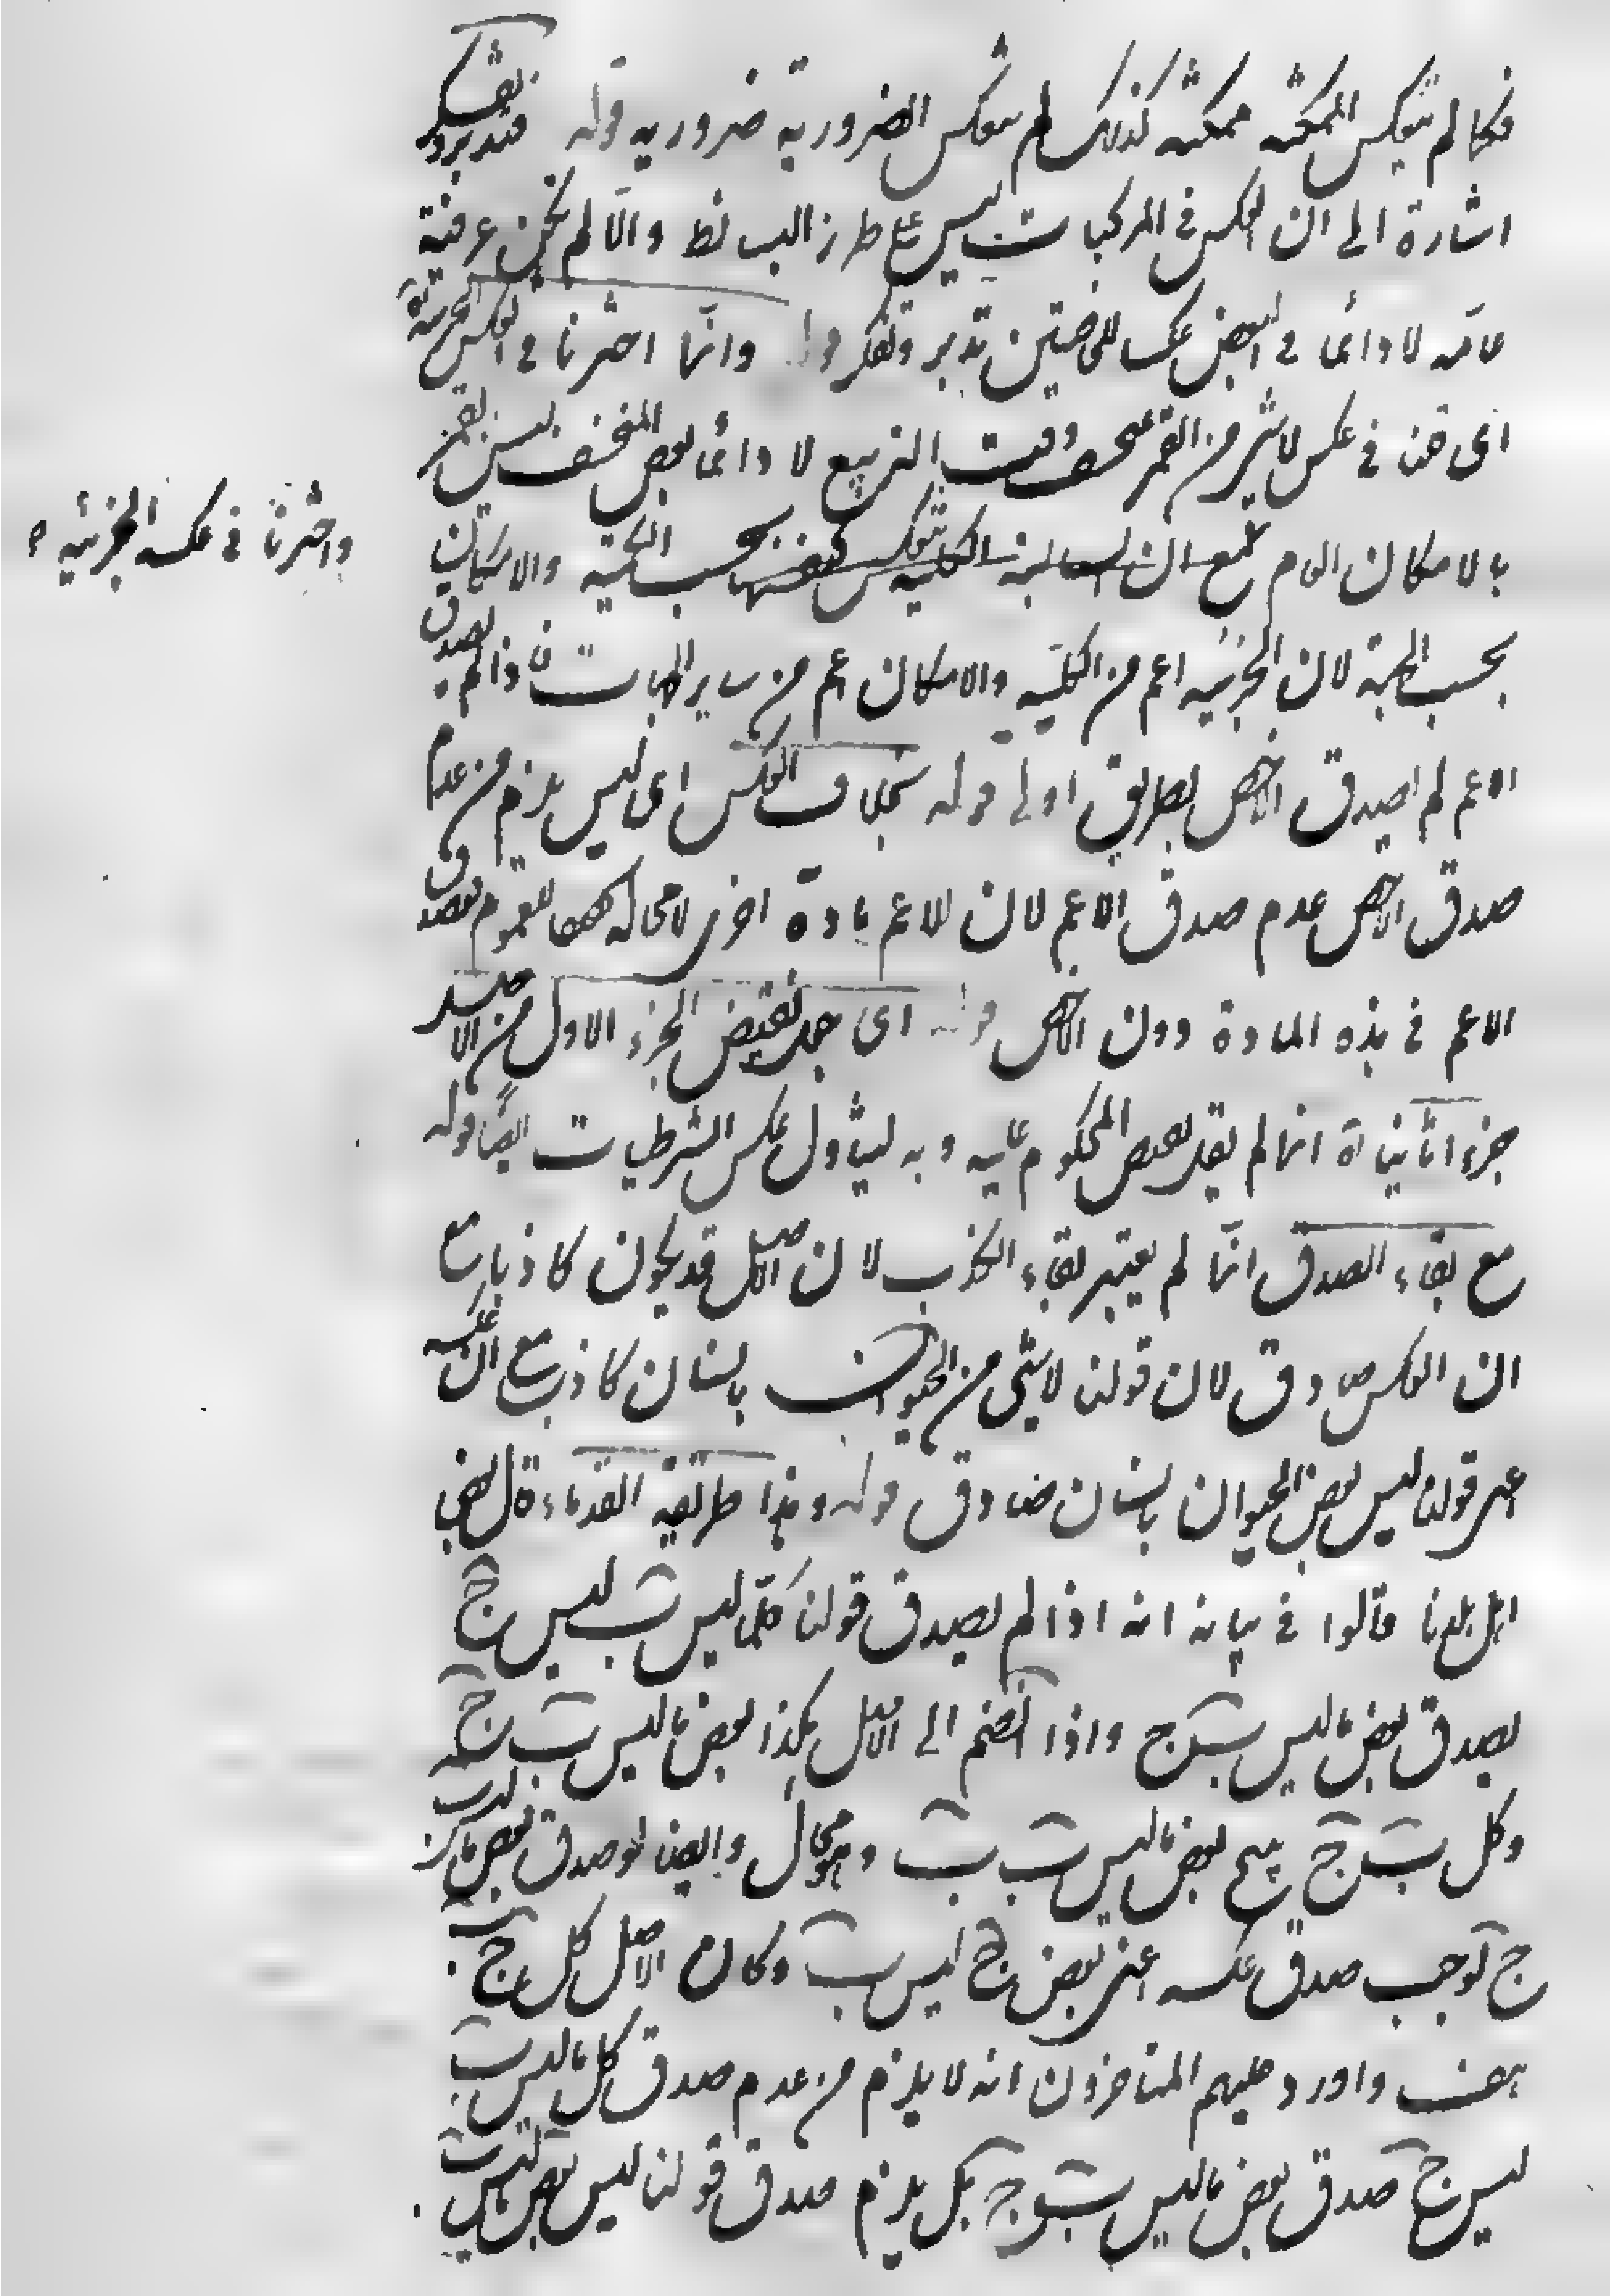 فكما لم تنعكس الممكنة ممكنة كذلك لم تنعكس الضرورية ضرورية قوله فتدبر وتفكر
اشارة الى ان العكس فى المركبات ليس على طرز البسائط والّا لم يكن عرفية
عامة لا دائما فى البعض عكسا للخاصتين تدبر وتفكر قوله وانّما اخترنا فى العكس الجزئية
اى قلنا فى عكس لا شئ من القمر بمنخسف وقت التربيع لا دائما بعض المنخسف ليس بقمر
بالامكان العام مع ان السالبة الكلية تنعكس كنفسها بحسب الكمية والامكان
واخترنا فى عكسه الجزئية
بحسب الجهة لان الجزئية اعم من الكلية والامكان اعم من ساير الجهات فاذا لم يصدق
الاعم لم يصدق الاخص بطريق اولى قوله بخلاف العكس اى ليس يلزم من عدم
صدق الاخص عدم صدق الاعم لان للاعم مادة اخرى لا محالة للعموم فيصدق
الاعم فى هذه المادة دون الاخص قوله اى جعل نقيض الجزء الاول من الاصل
جزء اثانيا انما لم يقل نقيض المحكوم عليه وبه ليتناول عكس الشرطيات ايضا قوله
مع بقاء الصدق انّما لم يعتبر بقاء الكذب لان الاصل قد يكون كاذبا مع
ان العكس صادق لان قولنا لا شئ من الحيوان بانسان كاذب مع ان عكسه
اعنى قولنا ليس بعض الحيوان بانسان صادق قوله وهذا طريقة القدماء قال بعض
اهل بلدنا قالوا فى بيانه انه اذا لم يصدق قولنا كلّما ليس ب ليس ج
يصدق بعض ما ليس ب ج واذا انضم الى الاصل هكذا بعض ما ليس ب ج
وكل ج ب ينتج بعض ما ليس ب ب وهو محال وايضا لو صدق بعض ما ليس ب
ج لوجب صدق عكسه اعنى بعض ج ليس ب وكان الاصل كل ج ب
هف واورد عليهم المتاخرون انه لا يلزم من عدم صدق كل ما ليس ب
ليس ج صدق بعض ما ليس ب ج بل يلزم صدق قولنا ليس بعض ما ليس ب